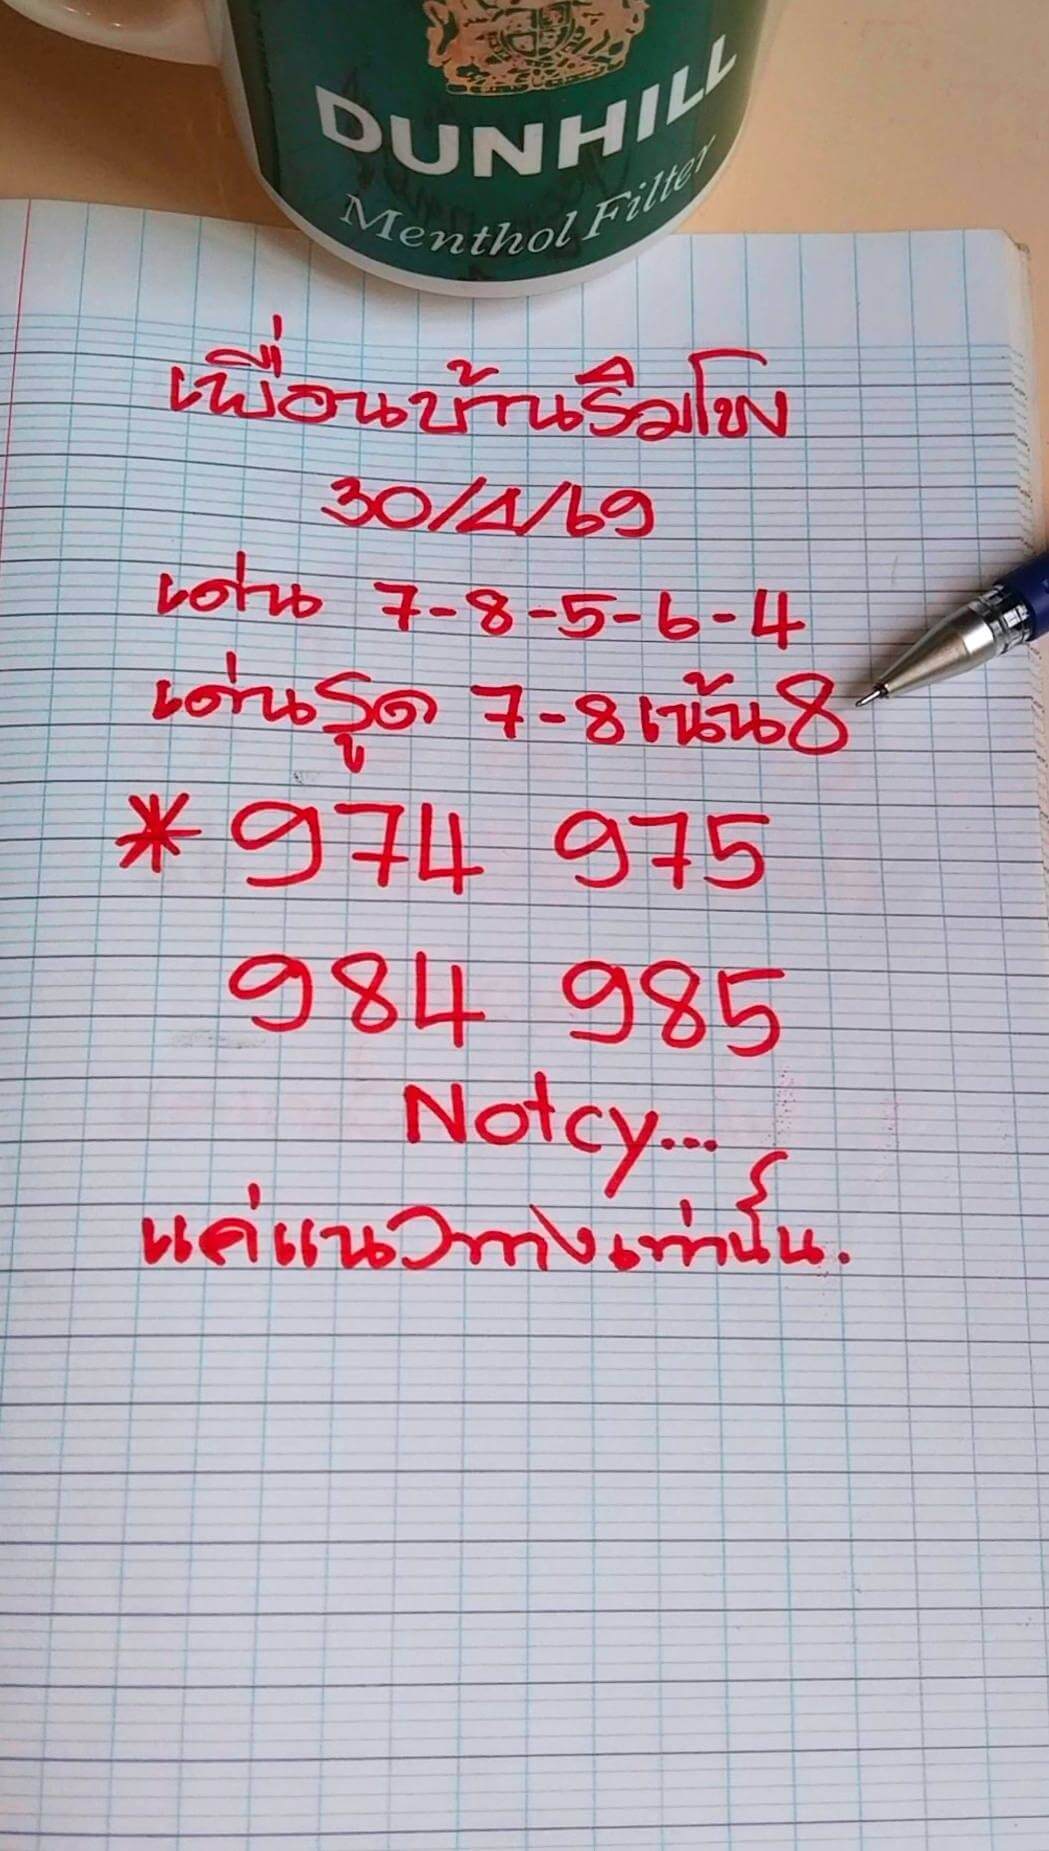 DUNHILL
Menthol Filter
เพื่อนบ้านริมโขง
30/4/69
เด่น 7-8-5-6-4
เด่นรูด 7-8 เน้น 8
* 974 975
984 985
Notcy...
แค่แนวทางเท่านั้น.